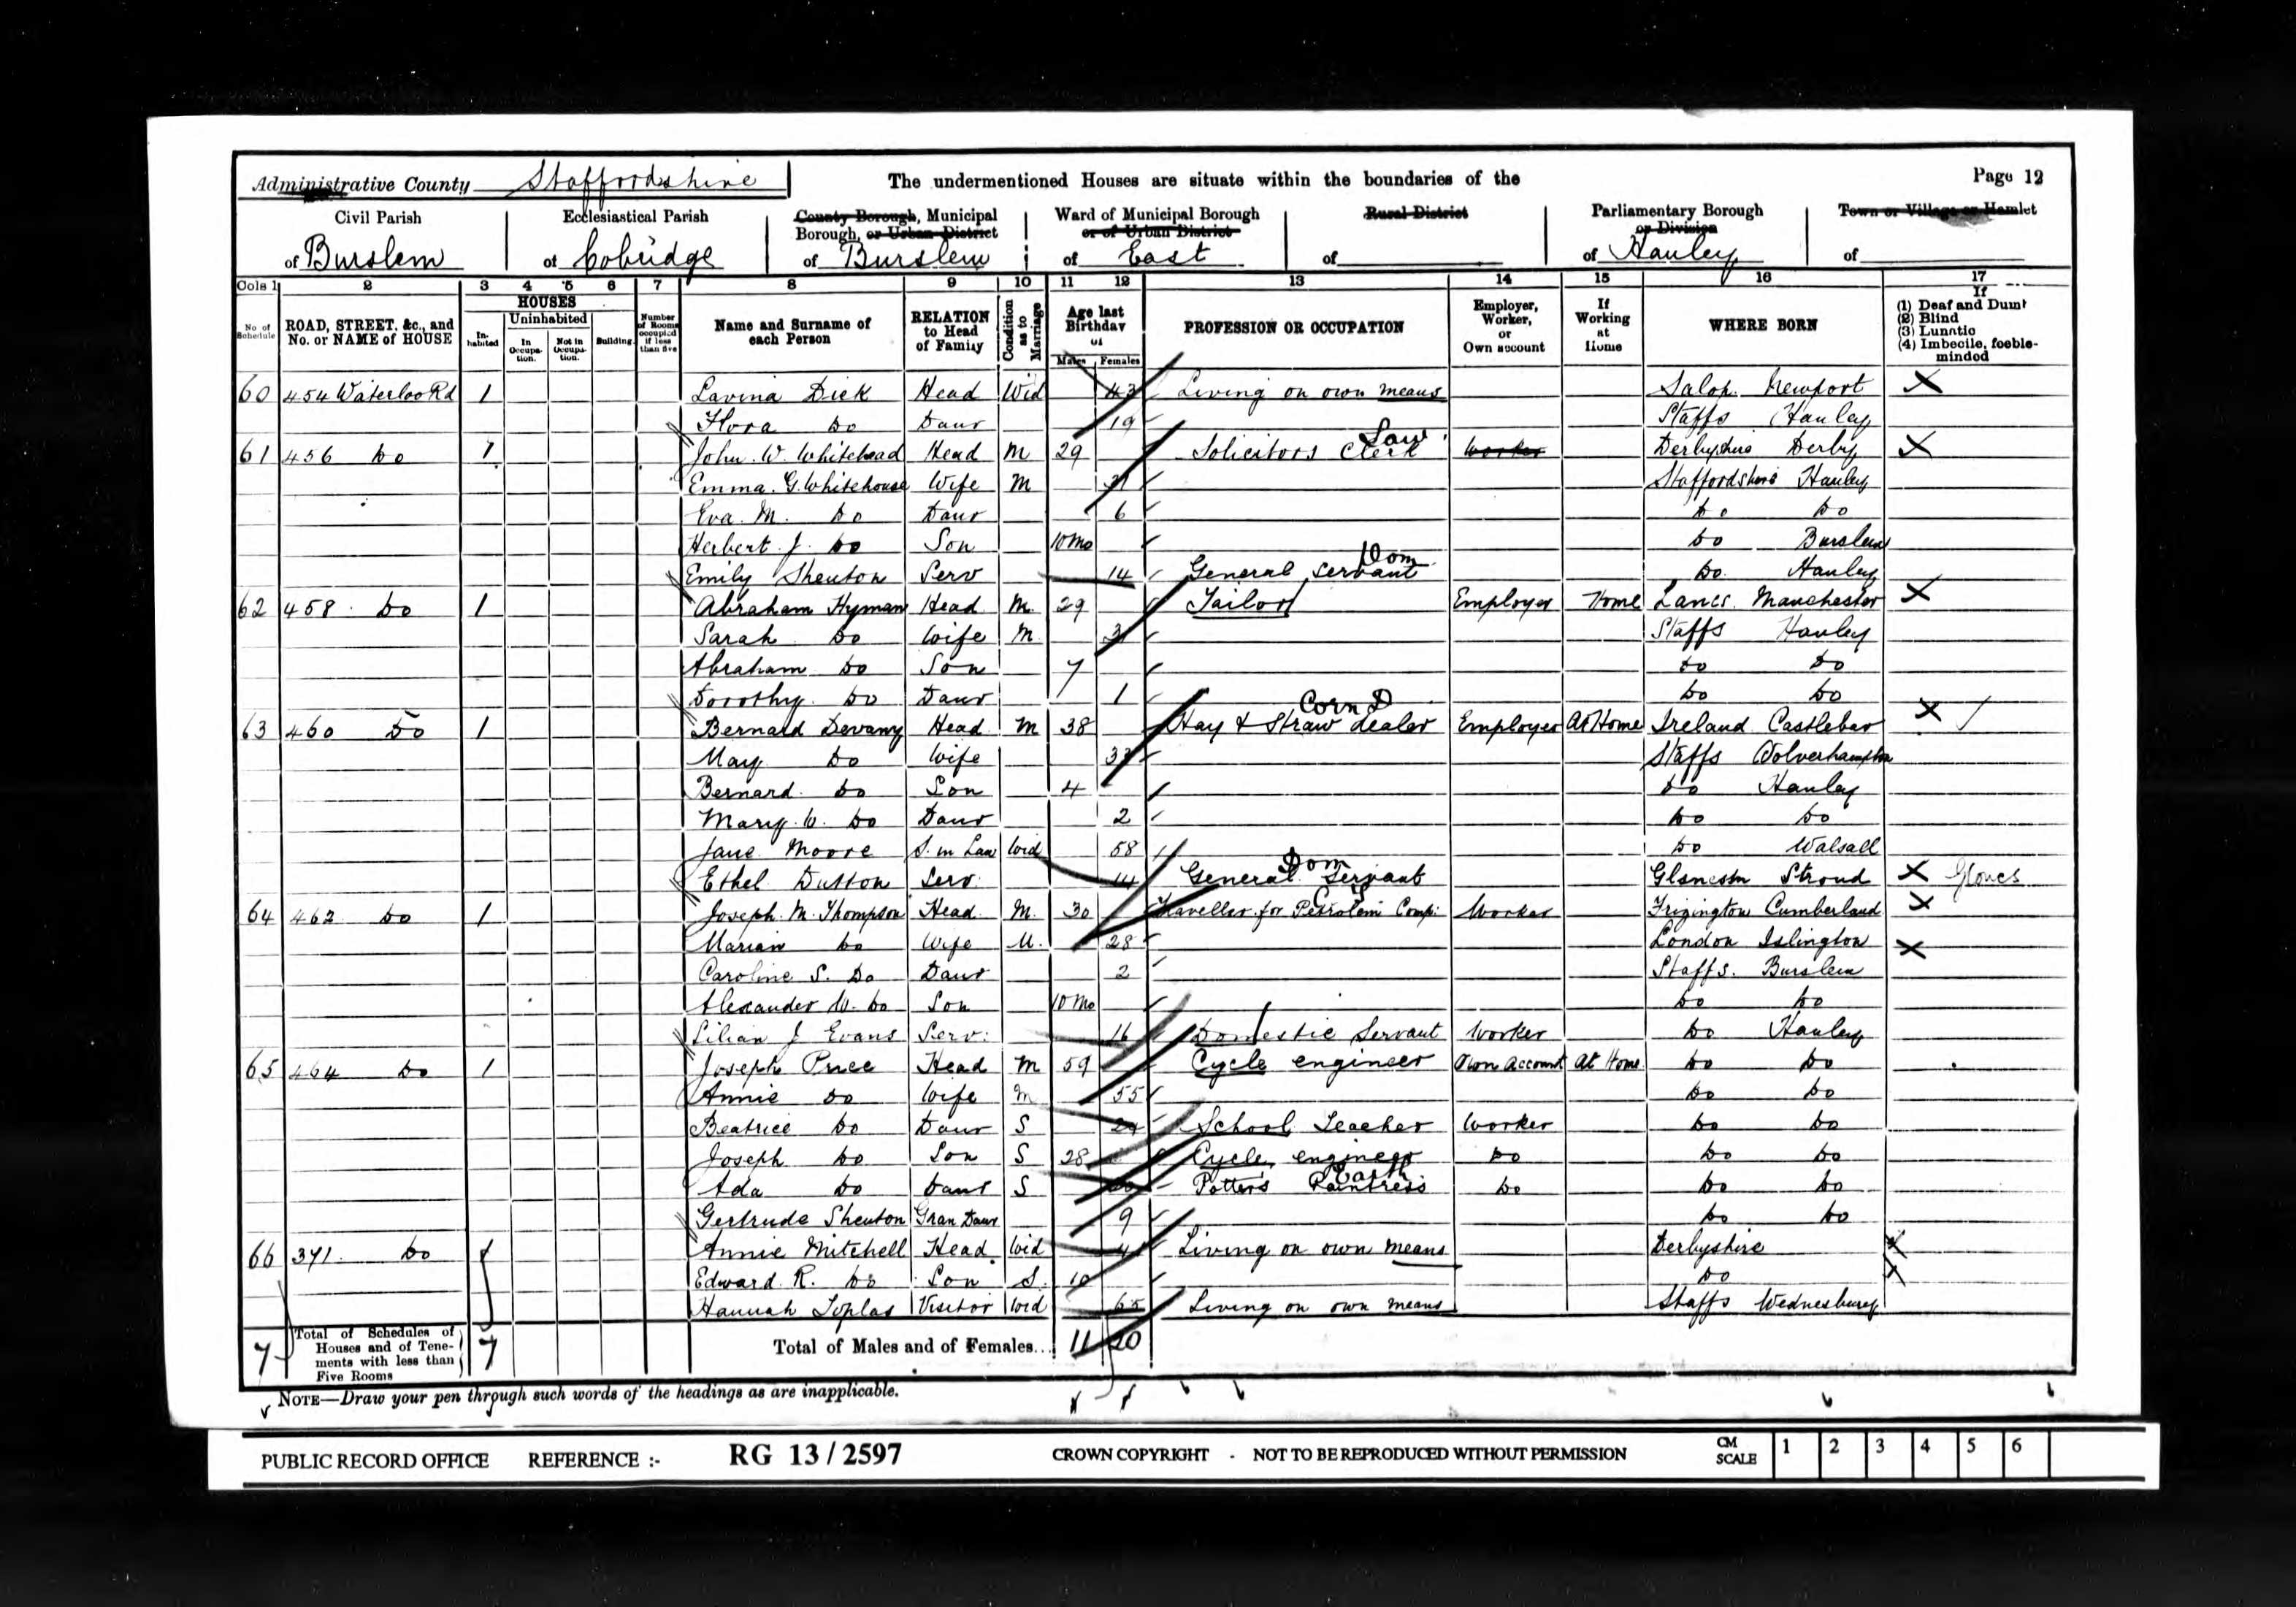 Administrative County Staffordshire The undermentioned Houses are situate within the boundaries of the Page 12
Civil Parish Ecclesiastical Parish County Borough, Municipal Borough, or Urban District Ward of Municipal Borough or of Urban District Rural District Parliamentary Borough or Division Town or Village or Hamlet
of Burslem of Cobridge of Burslem of East of of Hanley of
Cols 1 2 3 4 5 6 7 8 9 10 11 12 13 14 15 16 17
No of Schedule ROAD, STREET, &c., and No. or NAME of HOUSE HOUSES Inhabited Uninhabited In Occupation. Not in Occupation. Building. Number of Rooms occupied if less than five Name and Surname of each Person RELATION to Head of Family Condition as to Marriage Age last Birthday of Males Females PROFESSION OR OCCUPATION Employer, Worker, or Own account If Working at Home WHERE BORN If (1) Deaf and Dumb (2) Blind (3) Lunatic (4) Imbecile, feeble-minded
60 454 Waterloo Rd 1 Lavina Dick Head Wid 43 Living on own means Salop. Newport
Flora Do Daur 19 Staffs Hanley
61 456 Do 1 John. W. Whitehead Head M 29 Solicitors Clerk Law Worker Derbyshire Derby
Emma. G. Whitehouse Wife M Staffordshire Hanley
Eva. M. Do Daur 6 Do Do
Herbert. J. Do Son 10 Mo Do Burslem
Emily Shenton Serv 14 General Servant Dom Do. Hanley
62 458 Do 1 Abraham Hyman Head M 29 Tailor Employer Home Lancs. Manchester
Sarah Do Wife M Staffs Hanley
Abraham Do Son 7 Do Do
Dorothy Do Daur 1 Do Do
63 460 Do 1 Bernard Devany Head M 38 Hay & Straw dealer Corn D Employer At Home Ireland Castlebar
Mary Do Wife Staffs Wolverhampton
Bernard. Do Son 4 Do Hanley
Mary. W. Do Daur 2 Do Do
Jane Moore S. in Law Wid 58 Do Walsall
Ethel Dutton Serv. 14 General Servant Dom Stroud Gloucs
64 462 Do 1 Joseph. M. Thompson Head M. 30 Traveller for Petroleum Comp: Worker Frizington Cumberland
Marian Do Wife M. 28 London Islington
Caroline S. Do Daur 2 Staffs. Burslem
Alexander W. Do Son 10 Mo Do Do
Lilian J Evans Serv: 16 Domestic Servant Worker Do Hanley
65 464 Do 1 Joseph Price Head M 59 Cycle engineer Own Account At Home Do Do
Annie Do Wife M 55 Do Do
Beatrice Do Daur S School Teacher Worker Do Do
Joseph Do Son S 28 Cycle engineer Do Do Do
Ada Do Daur S Potters Paintress Earth Do Do Do
Gertrude Shenton Gran Daur 9 Do Do
66 371. Do 1 Annie Mitchell Head Wid Living on own means Derbyshire
Edward. R. Do Son S. 10 Do
Hannah Toplas Visitor Wid 65 Living on own means Staffs Wednesbury
7 Total of Schedules of Houses and of Tenements with less than Five Rooms 7 Total of Males and of Females... 11 20
NOTE—Draw your pen through such words of the headings as are inapplicable.
PUBLIC RECORD OFFICE REFERENCE :- RG 13 / 2597 CROWN COPYRIGHT - NOT TO BE REPRODUCED WITHOUT PERMISSION CM SCALE 1 2 3 4 5 6